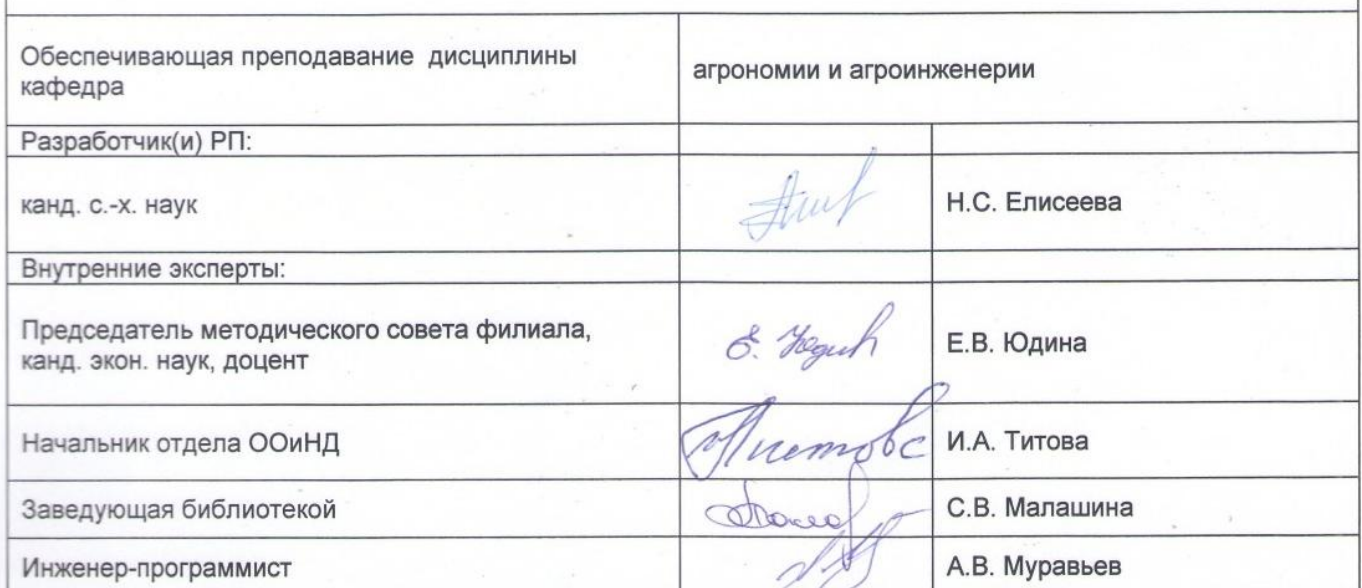 Обеспечивающая преподавание дисциплины
кафедра
агрономии и агроинженерии
Разработчик(и) РП:
канд. с.-х. наук
Н.С. Елисеева
Внутренние эксперты:
Председатель методического совета филиала,
канд. экон. наук, доцент
Е. Юдин
Е.В. Юдина
Начальник отдела ООиНД
И.А. Титова
Заведующая библиотекой
С.В. Малашина
Инженер-программист
А.В. Муравьев